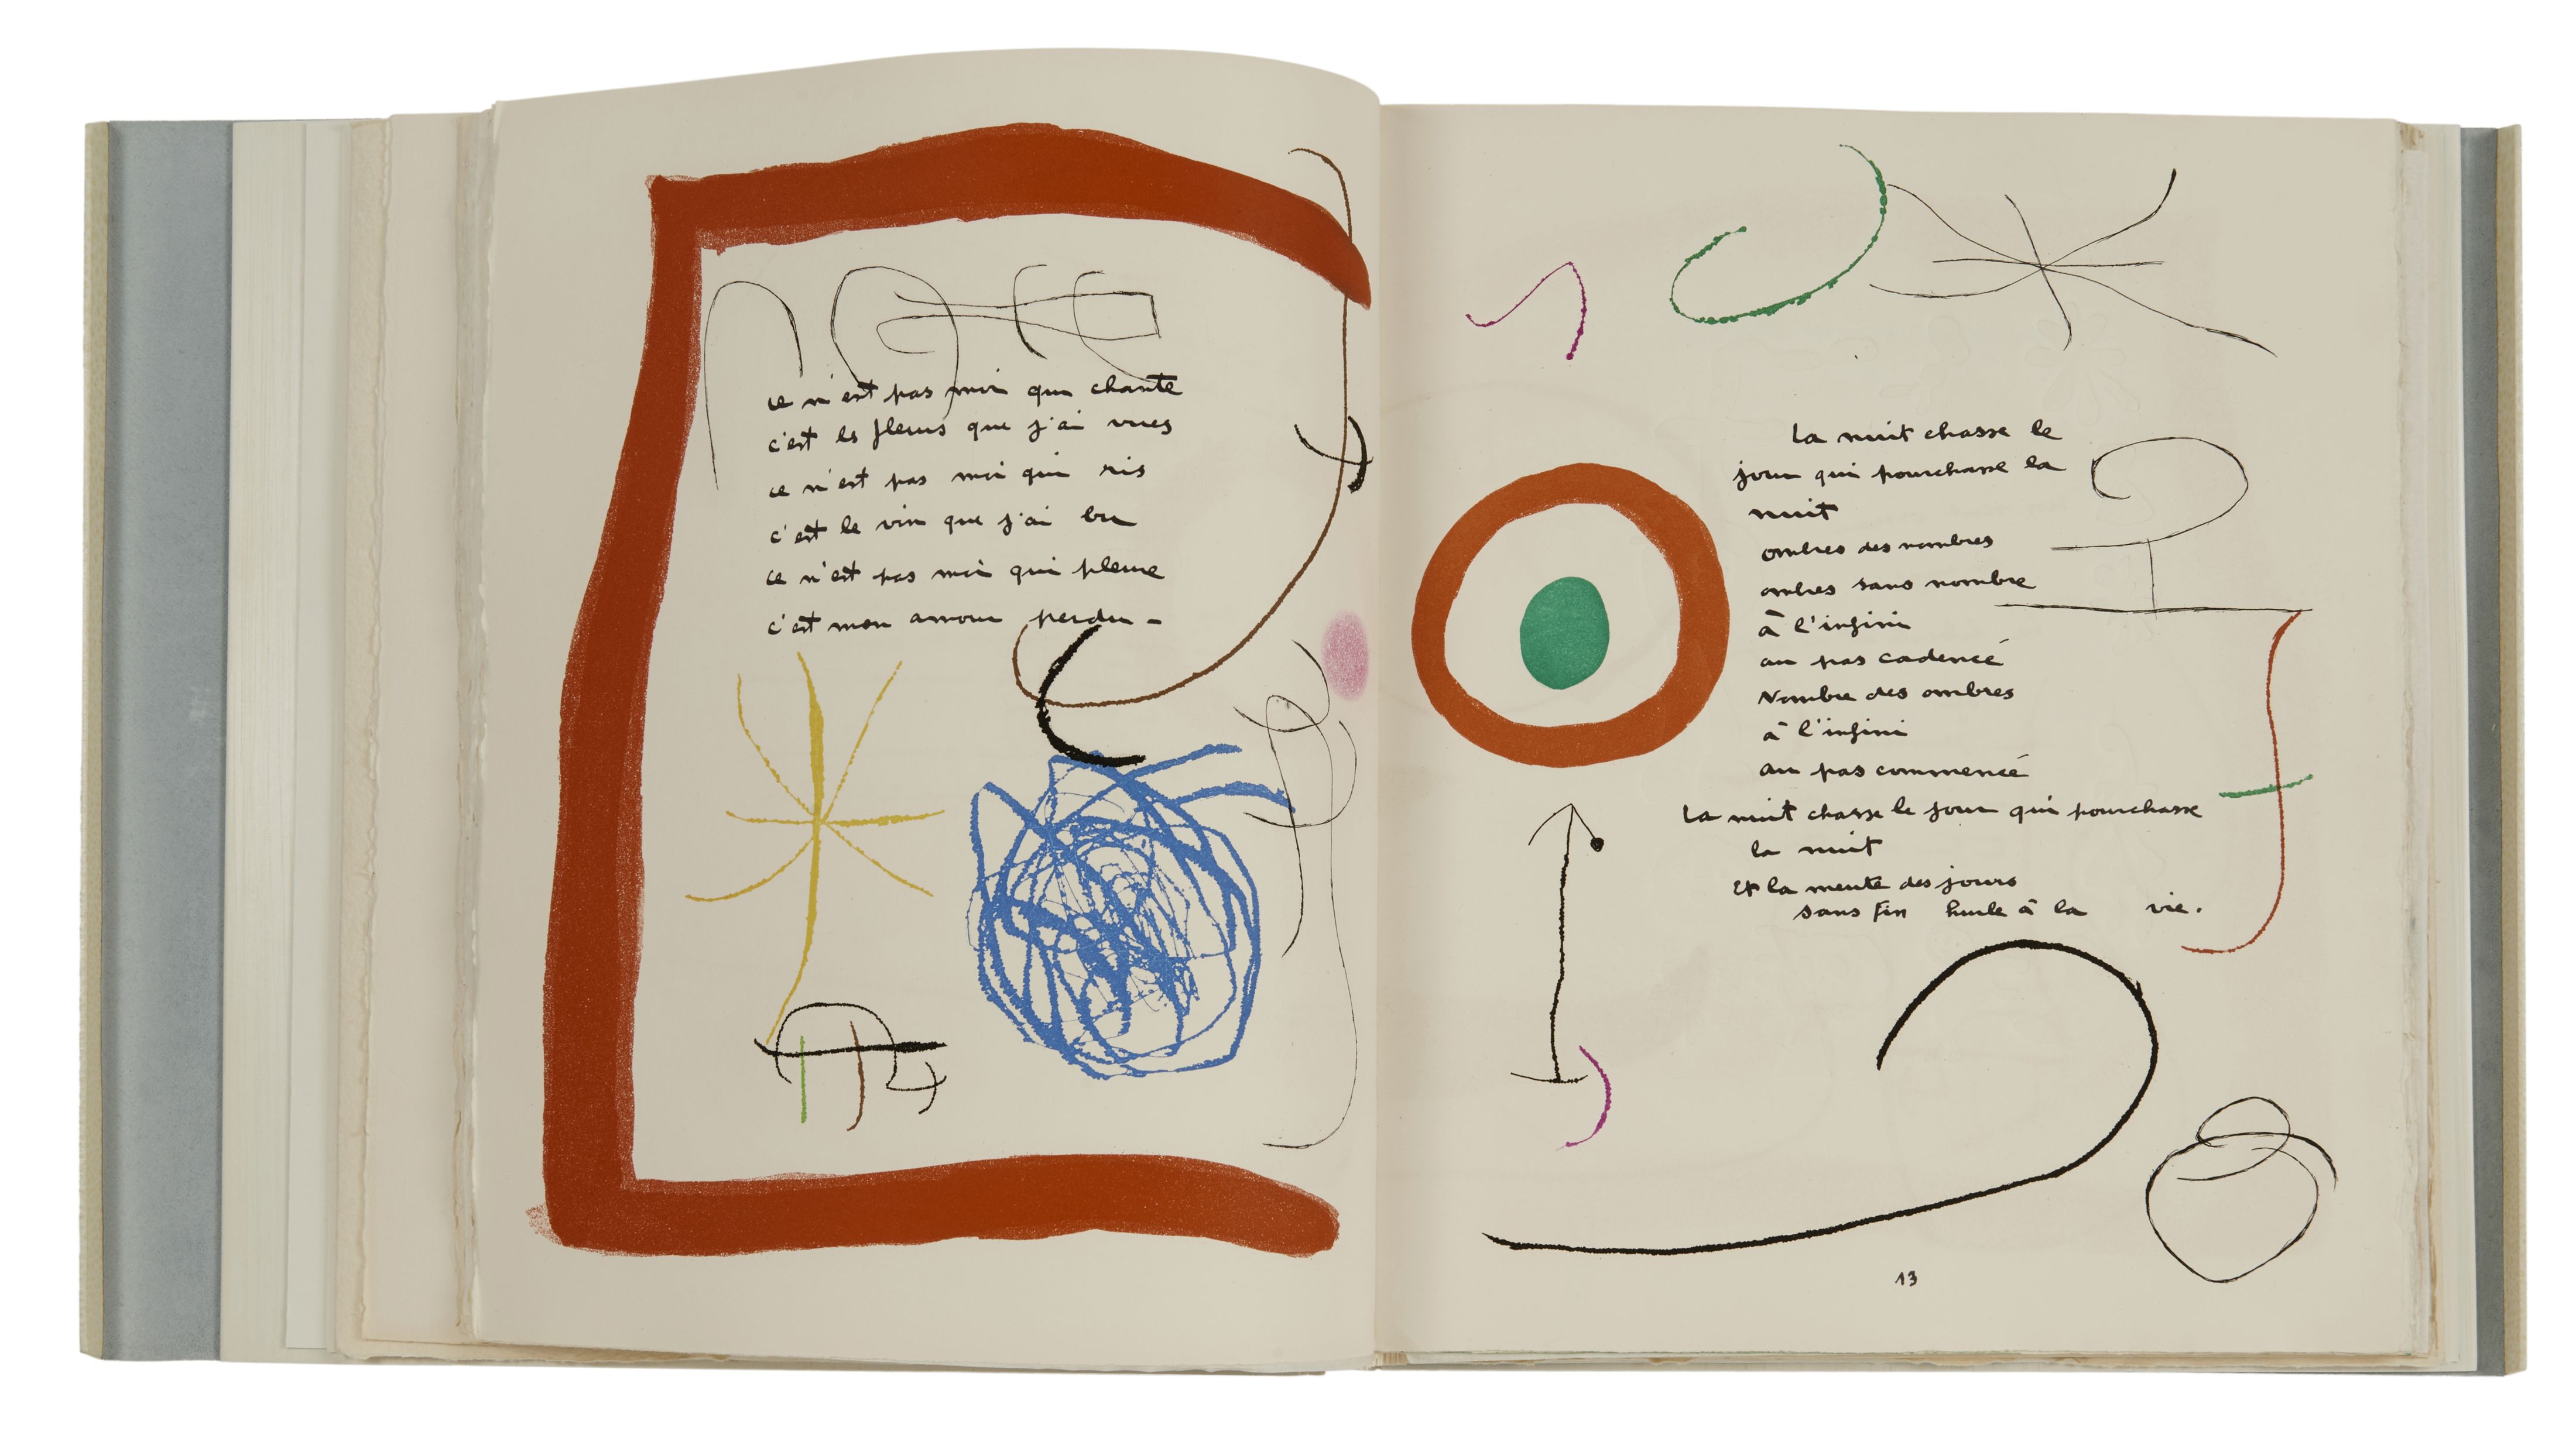 ce n'est pas moi qui chante
c'est les fleurs que j'ai vues
ce n'est pas moi qui ris
c'est le vin que j'ai bu
ce n'est pas moi qui pleure
c'est mon amour perdu -
La nuit chasse le
jour qui pourchasse la
nuit
ombres des nombres
ombres sans nombre
à l'infini
au pas cadencé
Nombre des ombres
à l'infini
au pas commencé
La nuit chasse le jour qui pourchasse
la nuit
Et la meute des jours
sans fin hurle à la vie.
13